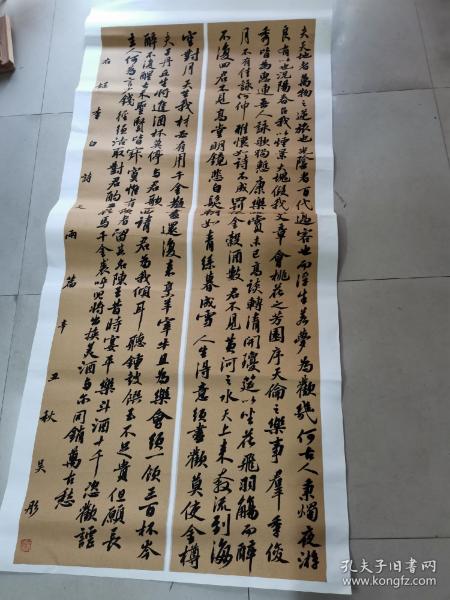 夫天地者萬物之逆旅也光陰者百代過客也而浮生若夢為歡幾何古人秉燭夜游
良有以也況陽春召我以煙景大塊假我文章會桃花之芳園序天倫之樂事羣季俊
秀皆為惠連吾人詠歌獨慙康樂幽賞未已高談轉清開瓊筵以坐花飛羽觴而醉
月不有佳詠何伸雅懷如詩不成罰金谷酒數君不見黃河之水天上來奔流到海
不復回君不見高堂明鏡悲白髮朝如青絲暮成雪人生得意須盡歡莫使金樽
空對月天生我材必有用千金散盡還復來烹羊宰牛且為樂會須一飲三百杯岑
夫子丹丘生將進酒杯莫停與君歌一曲請君為我傾耳聽鐘鼓饌玉不足貴但願長
醉不復醒古來聖賢皆寂寞惟有飲者留其名陳王昔時宴平樂斗酒十千恣歡謔
主人何為言少錢徑須沽取對君酌五花馬千金裘呼兒將出換美酒與爾同銷萬古愁
右錄李白詩文兩篇辛丑秋吳彤
孔夫子旧书网
book.kongfz.com